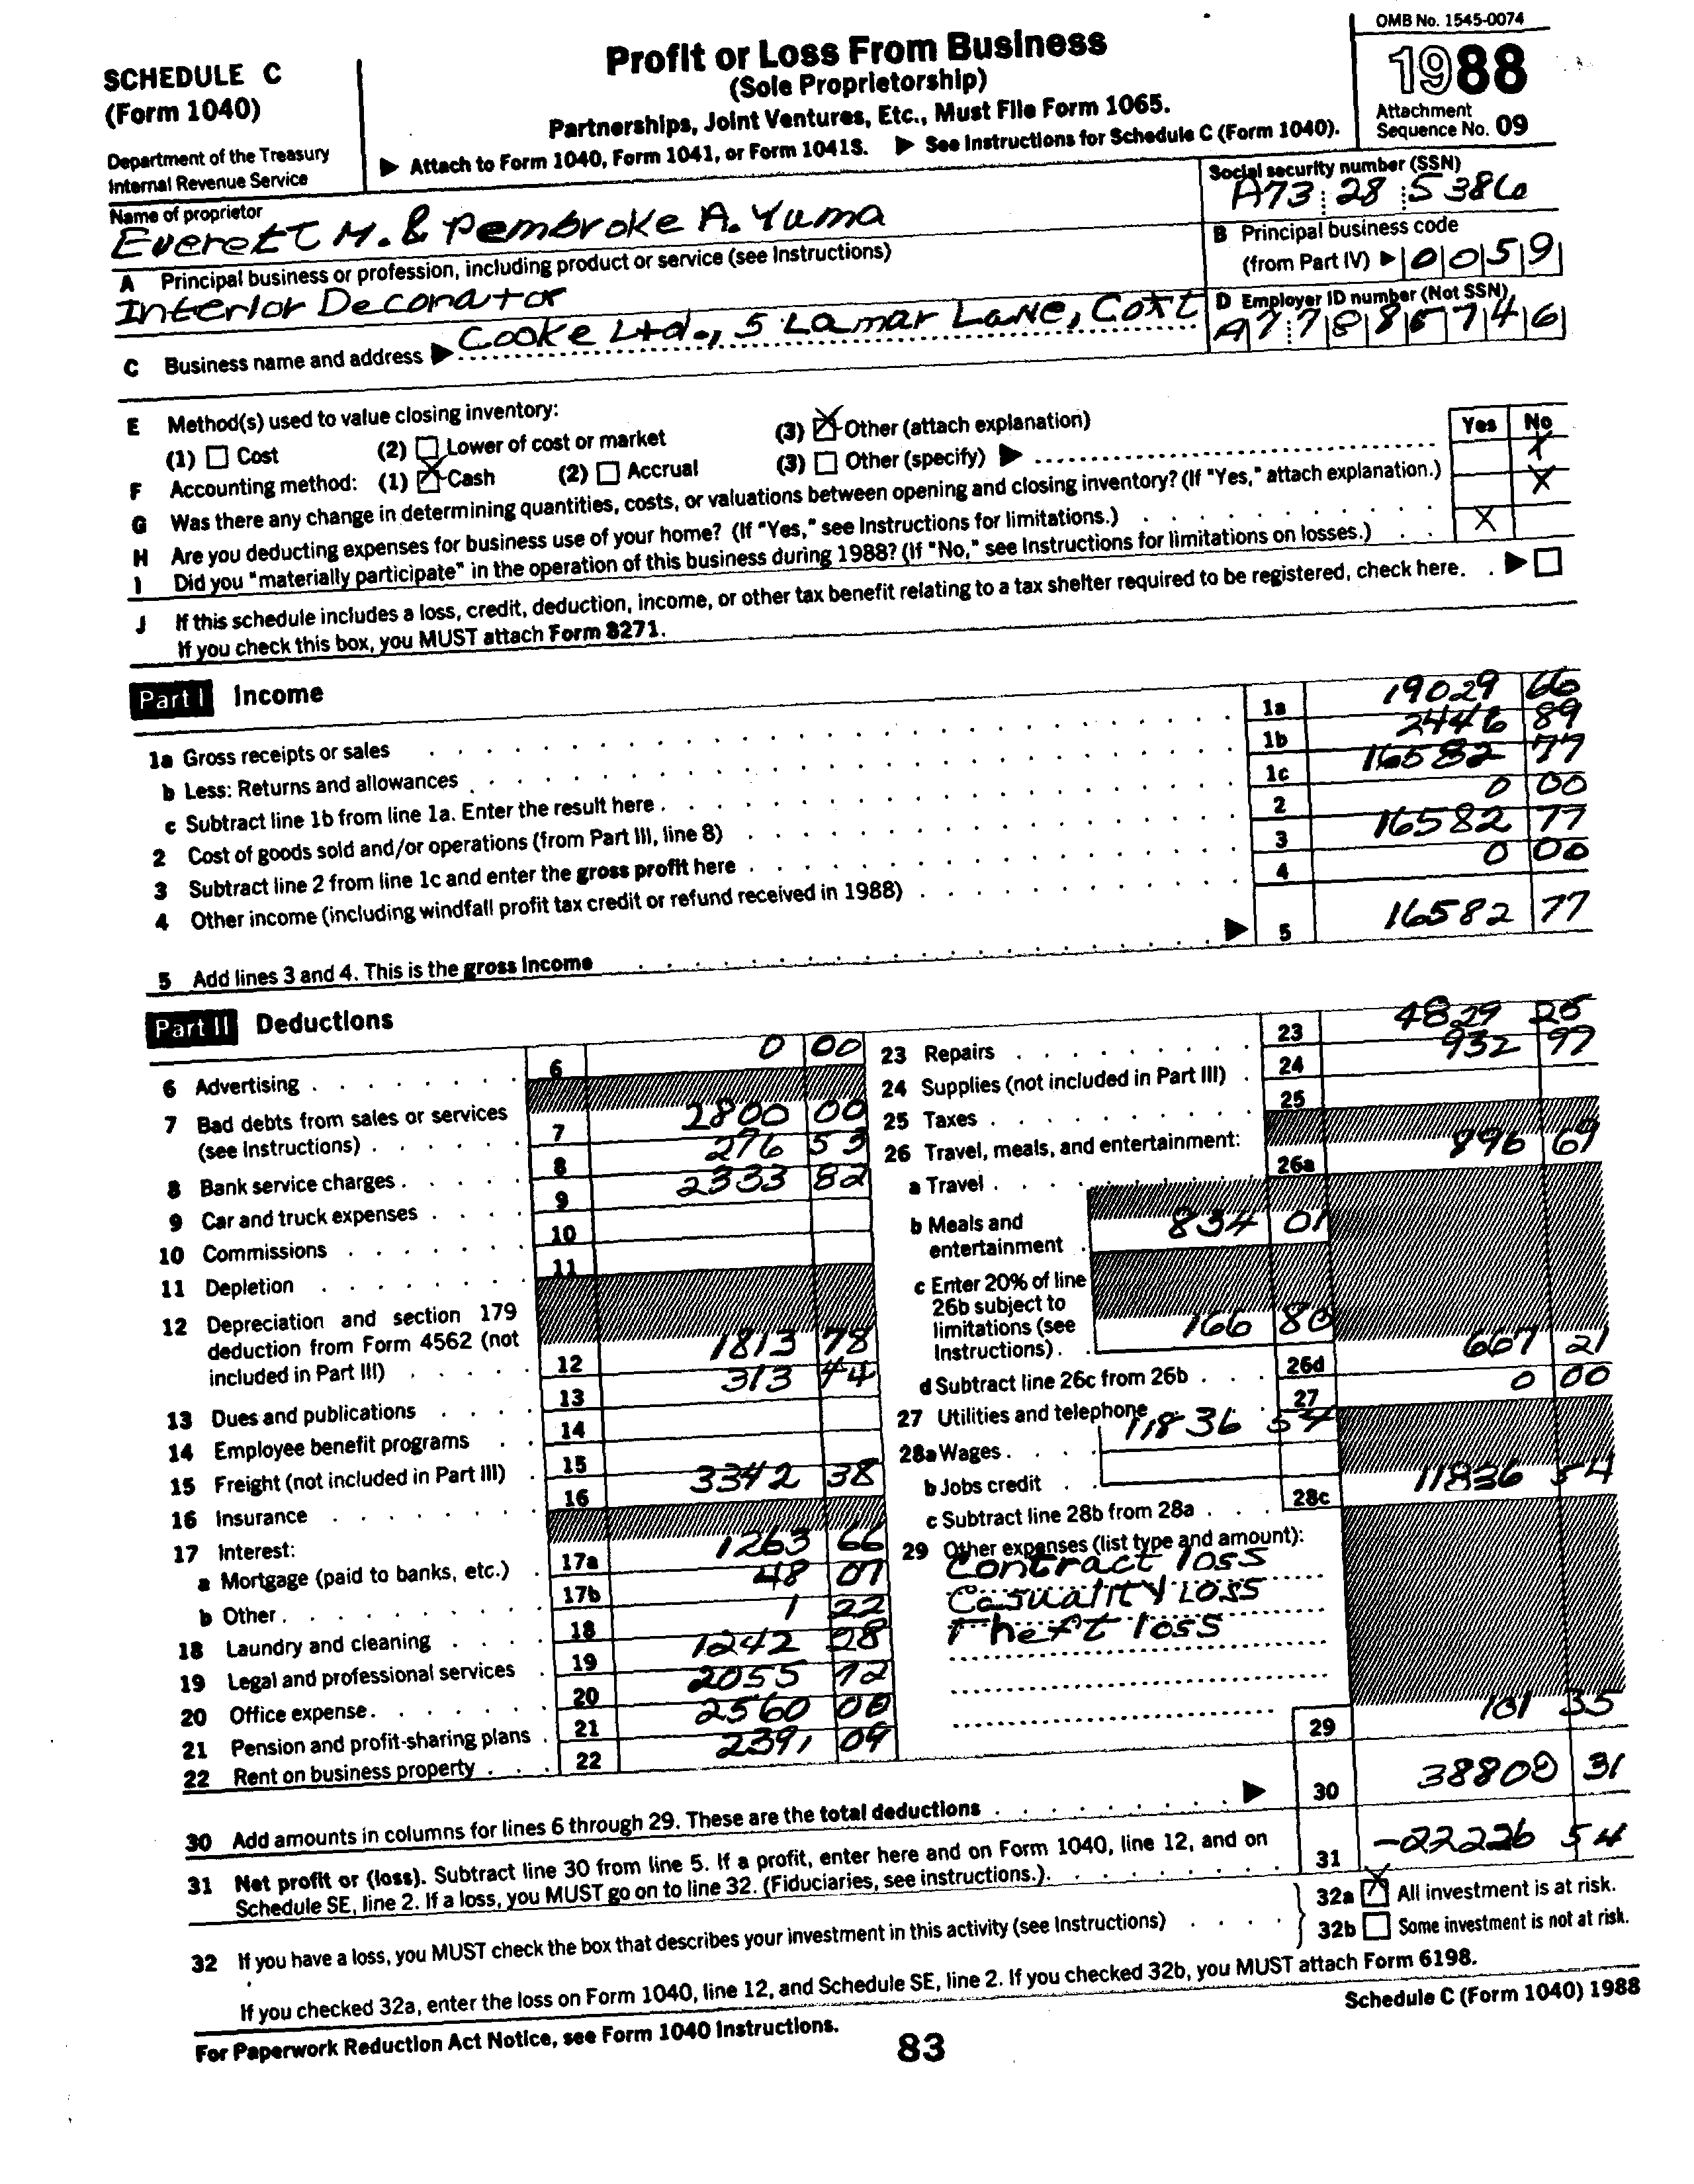 SCHEDULE C
(Form 1040)
Department of the Treasury
Internal Revenue Service
Profit or Loss From Business
(Sole Proprietorship)
Partnerships, Joint Ventures, Etc., Must File Form 1065.
▶ Attach to Form 1040, Form 1041, or Form 1041S. ▶ See Instructions for Schedule C (Form 1040).
OMB No. 1545-0074
1988
Attachment
Sequence No. 09
Name of proprietor
Everett M. & Pembroke A. Yuma
Social security number (SSN)
A73 28 5386
A Principal business or profession, including product or service (see Instructions)
Interior Decorator
B Principal business code
(from Part IV) ▶ 0059
C Business name and address ▶ Cooke Ltd., 5 Lamar Lane,
D Employer ID number (Not SSN)
E Method(s) used to value closing inventory:
(1) Cost (2) Lower of cost or market (3) X Other (attach explanation)
F Accounting method: (1) X Cash (2) Accrual (3) Other (specify) ▶
Yes No
G Was there any change in determining quantities, costs, or valuations between opening and closing inventory? (If "Yes," attach explanation.) X
H Are you deducting expenses for business use of your home? (If "Yes," see Instructions for limitations.) X
I Did you "materially participate" in the operation of this business during 1988? (If "No," see Instructions for limitations on losses.) X
J If this schedule includes a loss, credit, deduction, income, or other tax benefit relating to a tax shelter required to be registered, check here. ▶
If you check this box, you MUST attach Form 8271.
Part I Income
1a Gross receipts or sales 1a 19029 66
b Less: Returns and allowances 1b 2446 89
c Subtract line 1b from line 1a. Enter the result here 1c 16582 77
2 Cost of goods sold and/or operations (from Part III, line 8) 2 0 00
3 Subtract line 2 from line 1c and enter the gross profit here 3 16582 77
4 Other income (including windfall profit tax credit or refund received in 1988) 4 0 00
5 Add lines 3 and 4. This is the gross income ▶ 5 16582 77
Part II Deductions
6 Advertising 6 0 00
7 Bad debts from sales or services
(see Instructions) 7 2800 00
8 Bank service charges 8 276 53
9 Car and truck expenses 9 2333 82
10 Commissions 10
11 Depletion 11
12 Depreciation and section 179
deduction from Form 4562 (not
included in Part III) 12 1813 78
13 Dues and publications 13 313 44
14 Employee benefit programs 14
15 Freight (not included in Part III) 15
16 Insurance 16 3342 38
17 Interest:
a Mortgage (paid to banks, etc.) 17a 1263 66
b Other 17b 48 07
18 Laundry and cleaning 18 1 22
19 Legal and professional services 19 1242 28
20 Office expense 20 2055 12
21 Pension and profit-sharing plans 21 2560 00
22 Rent on business property 22 2391 09
23 Repairs 23 4829 25
24 Supplies (not included in Part III) 24 932 97
25 Taxes 25
26 Travel, meals, and entertainment:
a Travel 26a 896 69
b Meals and
entertainment 834 01
c Enter 20% of line
26b subject to
limitations (see
Instructions) 166 80
d Subtract line 26c from 26b 26d 667 21
27 Utilities and telephone 27 0 00
28a Wages 11836 54
b Jobs credit
c Subtract line 28b from 28a 28c 11836 54
29 Other expenses (list type and amount):
Contract loss
Casualtty loss
Theft loss
29 101 35
30 Add amounts in columns for lines 6 through 29. These are the total deductions ▶ 30 38809 31
31 Net profit or (loss). Subtract line 30 from line 5. If a profit, enter here and on Form 1040, line 12, and on
Schedule SE, line 2. If a loss, you MUST go on to line 32. (Fiduciaries, see instructions.) 31 -22226 54
32 If you have a loss, you MUST check the box that describes your investment in this activity (see Instructions)
32a X All investment is at risk.
32b Some investment is not at risk.
If you checked 32a, enter the loss on Form 1040, line 12, and Schedule SE, line 2. If you checked 32b, you MUST attach Form 6198.
For Paperwork Reduction Act Notice, see Form 1040 Instructions.
Schedule C (Form 1040) 1988
83